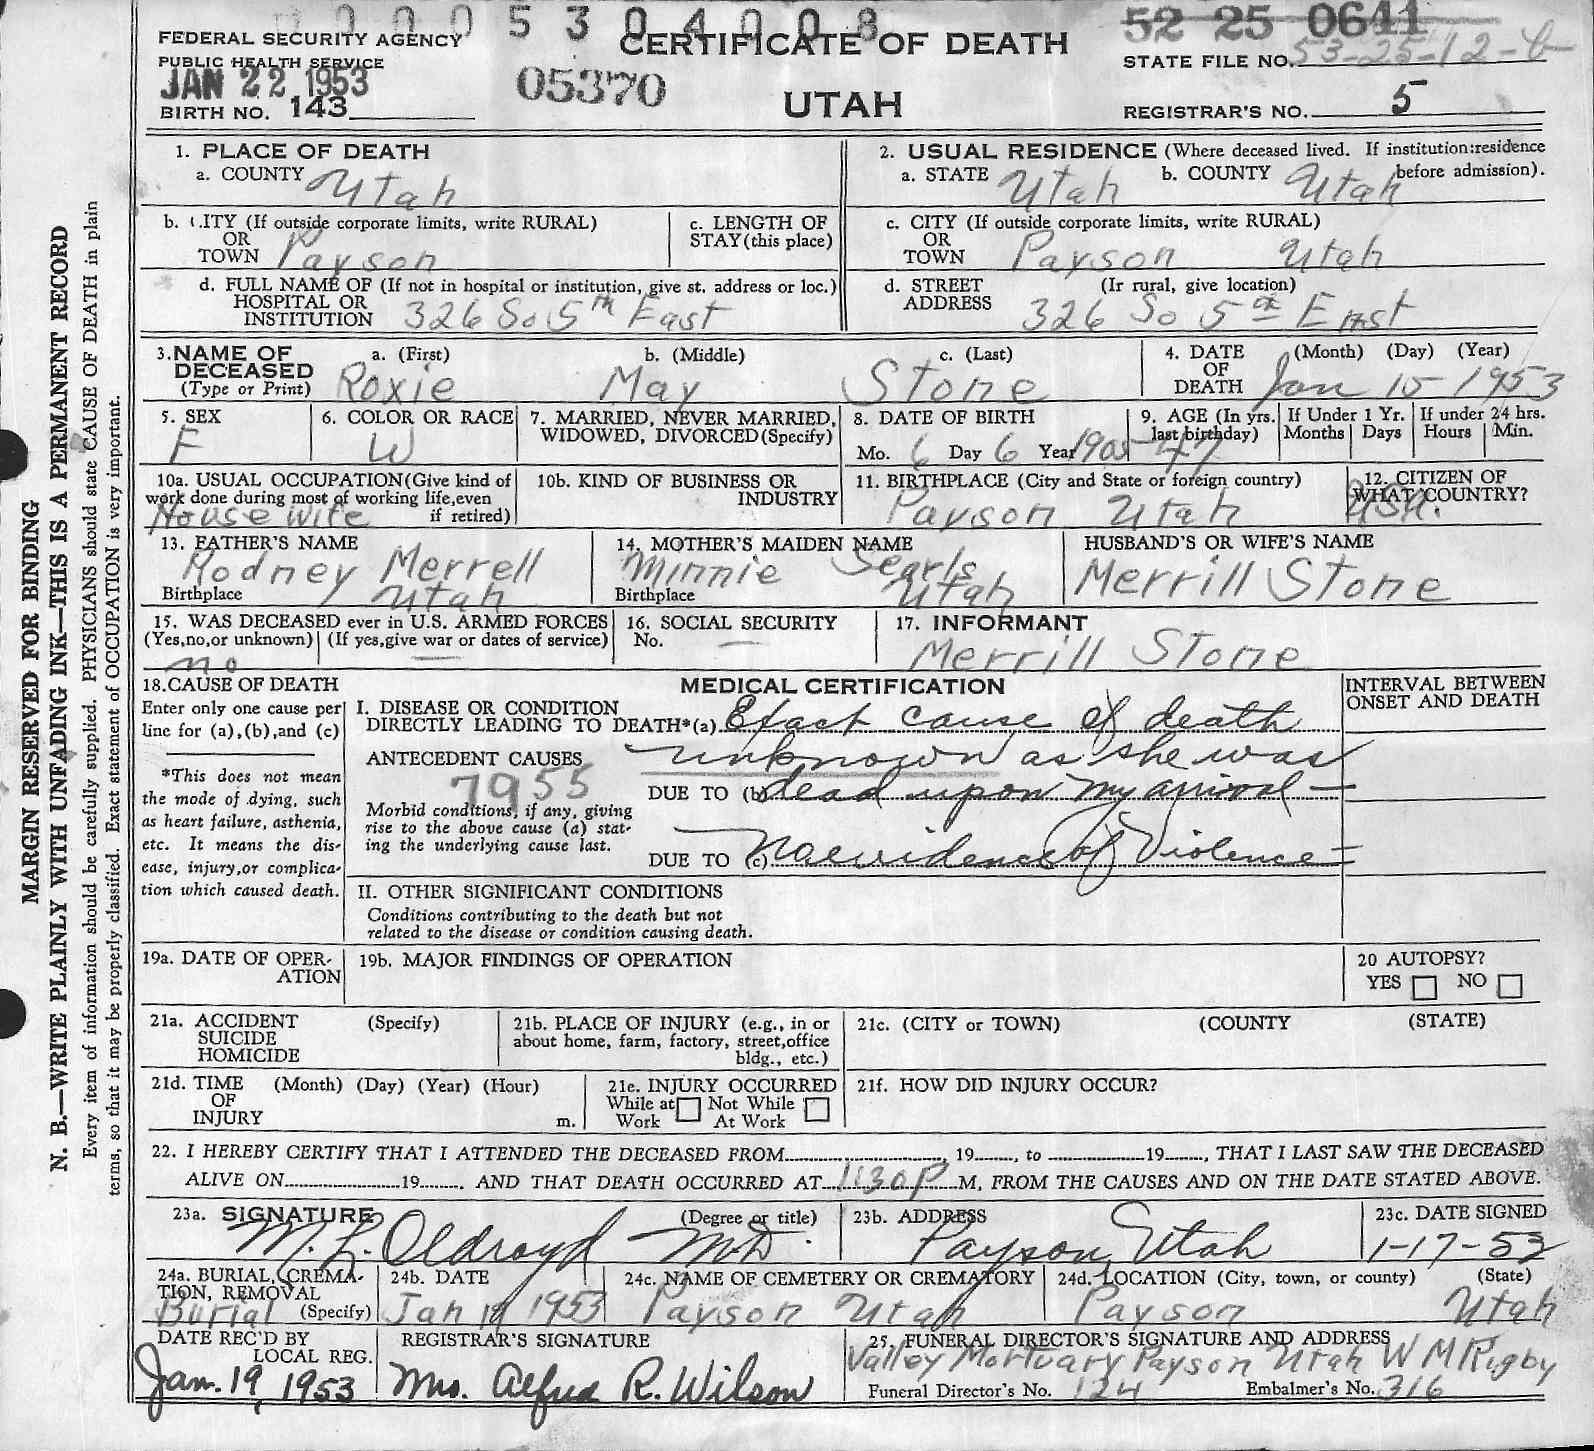 0 0 0 5 3 0 4 0 0 8
52 25 0641
FEDERAL SECURITY AGENCY
CERTIFICATE OF DEATH
PUBLIC HEALTH SERVICE
STATE FILE NO. 53-25-12-6
JAN 22 1953
05370
UTAH
BIRTH NO. 143
REGISTRAR'S NO. 5
1. PLACE OF DEATH
a. COUNTY Utah
2. USUAL RESIDENCE (Where deceased lived. If institution:residence
before admission).
a. STATE Utah b. COUNTY Utah
b. CITY (If outside corporate limits, write RURAL)
OR
TOWN Payson
c. LENGTH OF
STAY (this place)
c. CITY (If outside corporate limits, write RURAL)
OR
TOWN Payson Utah
d. FULL NAME OF (If not in hospital or institution, give st. address or loc.)
HOSPITAL OR
INSTITUTION 326 So 5th East
d. STREET (Ir rural, give location)
ADDRESS 326 So 5th East
3. NAME OF DECEASED (Type or Print)
a. (First) Roxie
b. (Middle) May
c. (Last) Stone
4. DATE OF DEATH (Month) (Day) (Year)
Jan 15 1953
5. SEX
F
6. COLOR OR RACE
W
7. MARRIED, NEVER MARRIED,
WIDOWED, DIVORCED (Specify)
8. DATE OF BIRTH
Mo. 6 Day 6 Year 1905
9. AGE (In yrs.
last birthday) 47
If Under 1 Yr.
Months Days
If under 24 hrs.
Hours Min.
10a. USUAL OCCUPATION (Give kind of
work done during most of working life, even
if retired)
Housewife
10b. KIND OF BUSINESS OR
INDUSTRY
11. BIRTHPLACE (City and State or foreign country)
Payson Utah
12. CITIZEN OF
WHAT COUNTRY?
USA.
13. FATHER'S NAME
Rodney Merrell
Birthplace Utah
14. MOTHER'S MAIDEN NAME
Minnie Searls
Birthplace Utah
HUSBAND'S OR WIFE'S NAME
Merrill Stone
15. WAS DECEASED ever in U.S. ARMED FORCES
(Yes, no, or unknown) (If yes, give war or dates of service)
no —
16. SOCIAL SECURITY
No. —
17. INFORMANT
Merrill Stone
18. CAUSE OF DEATH
Enter only one cause per
line for (a), (b), and (c)
*This does not mean
the mode of dying, such
as heart failure, asthenia,
etc. It means the dis-
ease, injury, or complica-
tion which caused death.
MEDICAL CERTIFICATION
INTERVAL BETWEEN
ONSET AND DEATH
I. DISEASE OR CONDITION
DIRECTLY LEADING TO DEATH* (a) Exact cause of death
ANTECEDENT CAUSES unknown as she was
7955
DUE TO (b) dead upon my arrival —
Morbid conditions, if any, giving
rise to the above cause (a) stat-
ing the underlying cause last.
DUE TO (c) No evidence of Violence —
II. OTHER SIGNIFICANT CONDITIONS
Conditions contributing to the death but not
related to the disease or condition causing death.
19a. DATE OF OPER-
ATION
19b. MAJOR FINDINGS OF OPERATION
20 AUTOPSY?
YES NO
21a. ACCIDENT (Specify)
SUICIDE
HOMICIDE
21b. PLACE OF INJURY (e.g., in or
about home, farm, factory, street, office
bldg., etc.)
21c. (CITY or TOWN) (COUNTY (STATE)
21d. TIME (Month) (Day) (Year) (Hour)
OF
INJURY m.
21e. INJURY OCCURRED
While at Work Not While At Work
21f. HOW DID INJURY OCCUR?
22. I HEREBY CERTIFY THAT I ATTENDED THE DECEASED FROM , 19 , to 19 , THAT I LAST SAW THE DECEASED
ALIVE ON 19 . AND THAT DEATH OCCURRED AT 1130P M, FROM THE CAUSES AND ON THE DATE STATED ABOVE.
23a. SIGNATURE (Degree or title)
M. L. Oldroyd M.D.
23b. ADDRESS
Payson, Utah
23c. DATE SIGNED
1-17-53
24a. BURIAL, CREMA-
TION, REMOVAL
Burial (Specify)
24b. DATE
Jan 19 1953
24c. NAME OF CEMETERY OR CREMATORY
Payson Utah
24d. LOCATION (City, town, or county) (State)
Payson Utah
DATE REC'D BY
LOCAL REG.
Jan. 19, 1953
REGISTRAR'S SIGNATURE
Mrs. Alfred R. Wilson
25. FUNERAL DIRECTOR'S SIGNATURE AND ADDRESS
Valley Mortuary Payson Utah W M Rigby
Funeral Director's No. 124 Embalmer's No. 316
MARGIN RESERVED FOR BINDING
N. B.—WRITE PLAINLY WITH UNFADING INK—THIS IS A PERMANENT RECORD
Every item of information should be carefully supplied. PHYSICIANS should state CAUSE OF DEATH in plain
terms, so that it may be properly classified. Exact statement of OCCUPATION is very important.